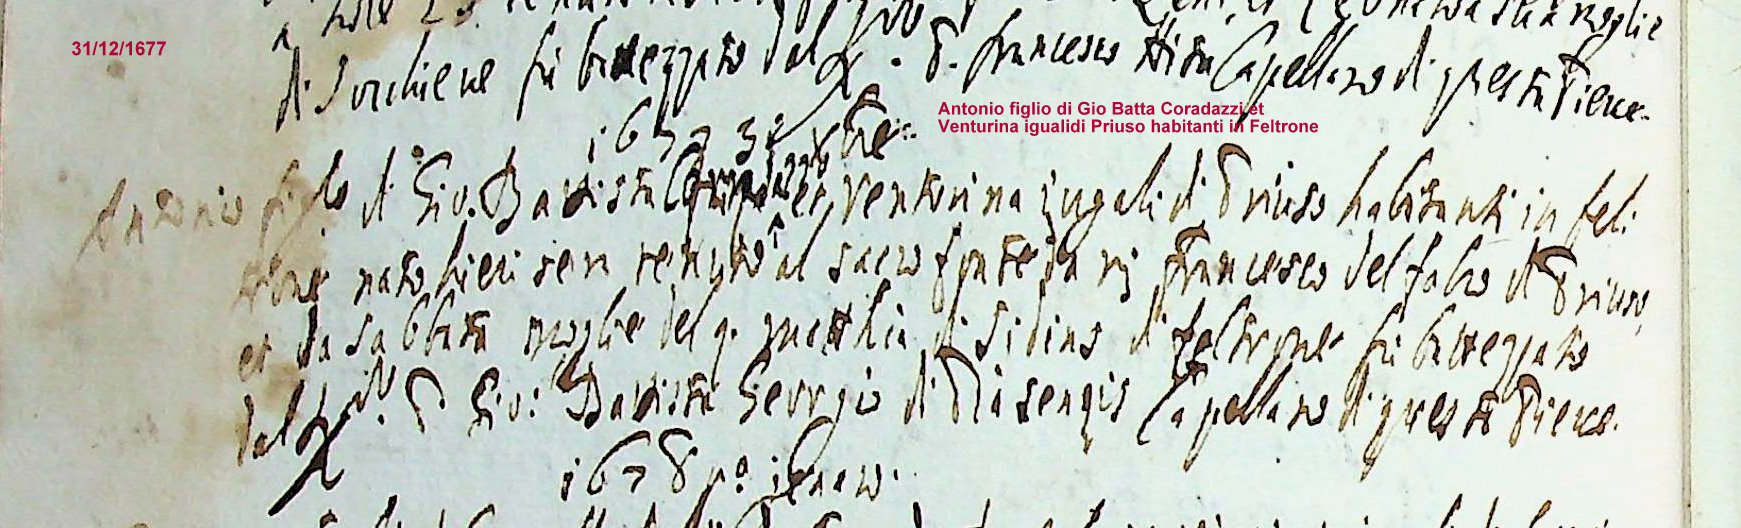 sua moglie
di Sorchieve fù battezzato dal P. francesco Capellano di questa Pieve.
31/12/1677
Antonio figlio di Gio Batta Coradazzi et
Venturina igualidi Priuso habitanti in Feltrone
1677 31 Xbre.
Antonio figlo di Gio. Batista et Venturina iugali di Priuso habitanti in fel:
trone nato hieri sera tenuto al sacro fonte da francesco del fabro di Priuso,
et da Sabbata moglie del q. matthia di Sidins di feltrone fù battezzato
dal P. Gio: Batista Georgio di Capellano di questa Pieve.
1678 p.o